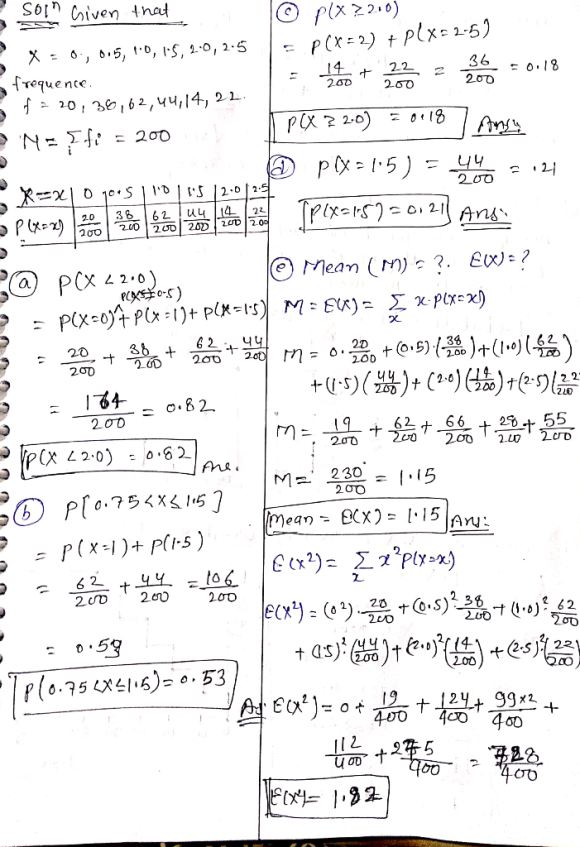 Soln Given that
X = 0, 0.5, 1.0, 1.5, 2.0, 2.5
frequence.
f = 20, 38, 62, 44, 14, 22.
N = Σ fi = 200
i
X=x | 0 | 0.5 | 1.0 | 1.5 | 2.0 | 2.5
P(X=x) | 20/200 | 38/200 | 62/200 | 44/200 | 14/200 | 22/200
(a) P(X < 2.0)
P(X=0.5)
= P(X=0) + P(X=1) + P(X=1.5)
= 20/200 + 38/200 + 62/200 + 44/200
= 164/200 = 0.82
P(X < 2.0) = 0.82 Ans.
(b) P[0.75 < X ≤ 1.5]
= P(X=1) + P(1.5)
= 62/200 + 44/200 = 106/200
= 0.53
P(0.75 < X ≤ 1.5) = 0.53 Ans
(c) P(X ≥ 2.0)
= P(X=2) + P(X=2.5)
= 14/200 + 22/200 = 36/200 = 0.18
P(X ≥ 2.0) = 0.18 Ans
(d) P(X=1.5) = 44/200 = .21
P(X=1.5) = 0.21 Ans:
(e) Mean (M) = ?. E(X) = ?
M = E(X) = Σ x·P(X=x)
x
M = 0·20/200 + (0.5)·(38/200) + (1.0)(62/200)
+ (1.5)(44/200) + (2.0)(14/200) + (2.5)(22/200
M = 19/200 + 62/200 + 66/200 + 28/200 + 55/200
M = 230/200 = 1.15
Mean = E(X) = 1.15 Ans:
E(X²) = Σ x²P(X=x)
x
E(X²) = (0²)·20/200 + (0.5)²·38/200 + (1.0)²·62/200
+ (1.5)²·(44/200) + (2.0)²(14/200) + (2.5)²(22/200)
E(X²) = 0 + 19/400 + 124/400 + 99×2/400 +
112/400 + 275/400 = 728/400
E(X²) = 1.82